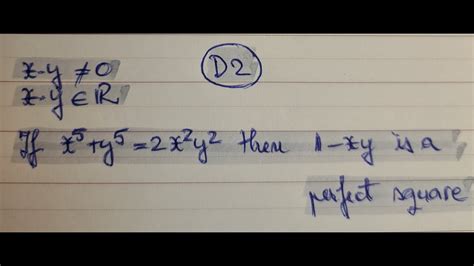 D2
x·y ≠ 0
x·y ∈ ℝ
If x⁵+y⁵=2x²y² then 1-xy is a
perfect square